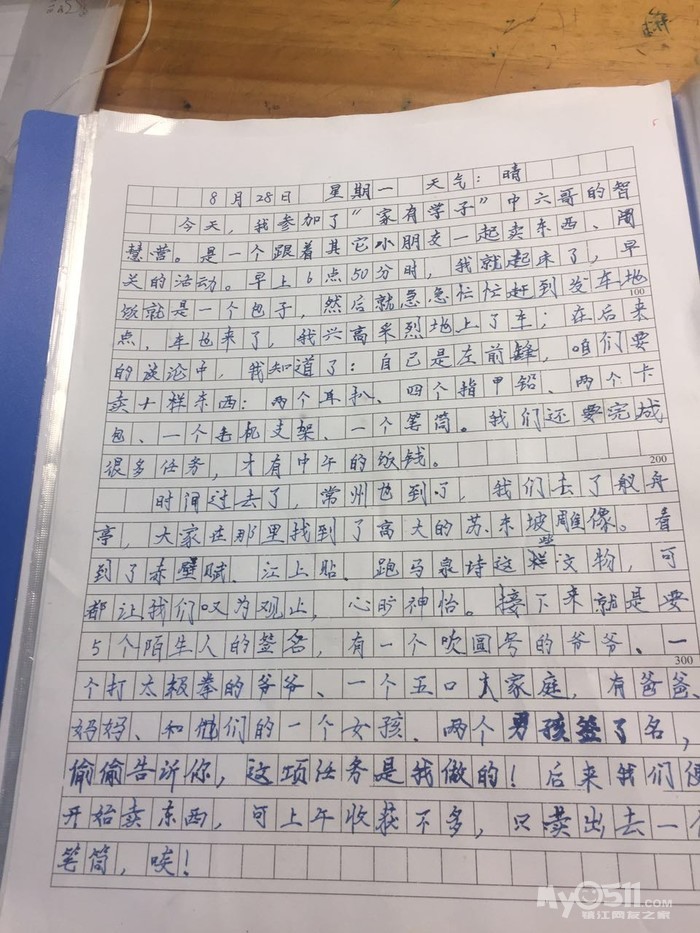 8月28日 星期一 天气:晴
今天,我参加了“家有学子”中六哥的智
慧营。是一个跟着其它小朋友一起卖东西、闯
关的活动。早上6点50分时,我就起床了,早
饭就是一个包子,然后就急急忙忙赶到发车地
100
点,车也来了,我兴高采烈地上了车;在后来
的谈论中,我知道了:自己是左前锋,咱们要
卖十样东西:两个耳扒、四个指甲铅、两个卡
包、一个手机支架、一个笔筒。我们还要完成
很多任务,才有中午的饭钱。
200
时间过去了,常州也到了,我们去了舣舟
亭,大家在那里找到了高大的苏东坡雕像。看
到了赤壁赋、江上贴、跑马泉诗这些文物,可
都让我们叹为观止,心旷神怡。接下来就是要
5个陌生人的签名,有一个吹圆号的爷爷、一
300
个打太极拳的爷爷、一个五口大家庭,有爸爸、
妈妈、和他们的一个女孩、两个男孩签了名,
偷偷告诉你,这项任务是我做的!后来我们便
开始卖东西,可上午收获不多,只卖出去一个
笔筒,唉!
My0511.com
镇江网友之家